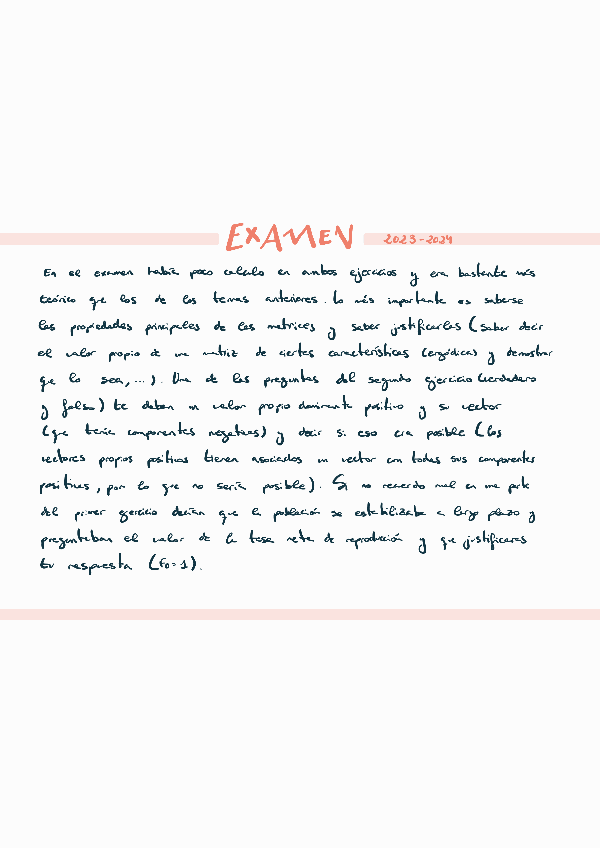 EXAMEN 2023-2024
En el examen había poco calculo en ambos ejercicios y era bastante más
teórico que los de los temas anteriores. Lo más importante es saberse
las propiedades principales de las matrices y saber justificarlas (saber decir
el valor propio de una matriz de ciertas características (ergódicas) y demostrar
que lo sea, ...). Una de las preguntas del segundo ejercicio (verdadero
y falso) te daban un valor propio dominante positivo y su vector
(que tenía componentes negativas) y decir si eso era posible (los
vectores propios positivos tienen asociados un vector con todas sus componentes
positivas, por lo que no sería posible). Si no recuerdo mal en una parte
del primer ejercicio decían que la población se estabilizaba a largo plazo y
preguntaban el valor de la tasa neta de reproducción y que justificaras
tu respuesta (r₀=1).